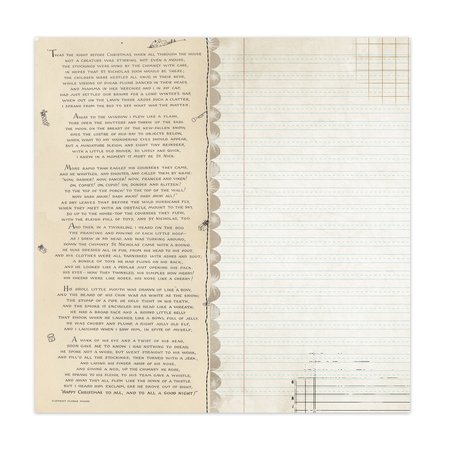 'Twas the night before Christmas, when all through the house
Not a creature was stirring, not even a mouse;
The stockings were hung by the chimney with care,
In hopes that St Nicholas soon would be there;
The children were nestled all snug in their beds,
While visions of sugar-plums danced in their heads;
And mamma in her 'kerchief, and I in my cap,
Had just settled our brains for a long winter's nap,
When out on the lawn there arose such a clatter,
I sprang from the bed to see what was the matter.
Away to the window I flew like a flash,
Tore open the shutters and threw up the sash.
The moon, on the breast of the new-fallen snow,
Gave the lustre of mid-day to objects below,
When, what to my wondering eyes should appear,
But a miniature sleigh, and eight tiny reindeer,
With a little old driver, so lively and quick,
I knew in a moment it must be St Nick.
More rapid than eagles his coursers they came,
And he whistled, and shouted, and called them by name:
"Now, Dasher! now, Dancer! now, Prancer and Vixen!
On, Comet! on, Cupid! on, Donder and Blitzen!
To the top of the porch! to the top of the wall!
Now dash away! dash away! dash away all!"
As dry leaves that before the wild hurricane fly,
When they meet with an obstacle, mount to the sky,
So up to the house-top the coursers they flew,
With the sleigh full of toys, and St Nicholas, too.
And then, in a twinkling, I heard on the roof
The prancing and pawing of each little hoof.
As I drew in my head, and was turning around,
Down the chimney St Nicholas came with a bound.
He was dressed all in fur, from his head to his foot,
And his clothes were all tarnished with ashes and soot;
A bundle of toys he had flung on his back,
And he looked like a pedlar just opening his pack.
His eyes - how they twinkled, his dimples how merry!
His cheeks were like roses, his nose like a cherry!
His droll little mouth was drawn up like a bow,
And the beard of his chin was as white as the snow;
The stump of a pipe he held tight in his teeth,
And the smoke it encircled his head like a wreath;
He had a broad face and a round little belly
That shook, when he laughed, like a bowl full of jelly.
He was chubby and plump, a right jolly old elf,
And I laughed when I saw him, in spite of myself;
A wink of his eye and a twist of his head,
Soon gave me to know I had nothing to dread;
He spoke not a word, but went straight to his work,
And fill'd all the stockings; then turned with a jerk,
And laying his finger aside of his nose,
And giving a nod, up the chimney he rose;
He sprang to his sleigh, to his team gave a whistle,
And away they all flew like the down of a thistle.
But I heard him exclaim, ere he drove out of sight,
"Happy Christmas to all, and to all a good night!"